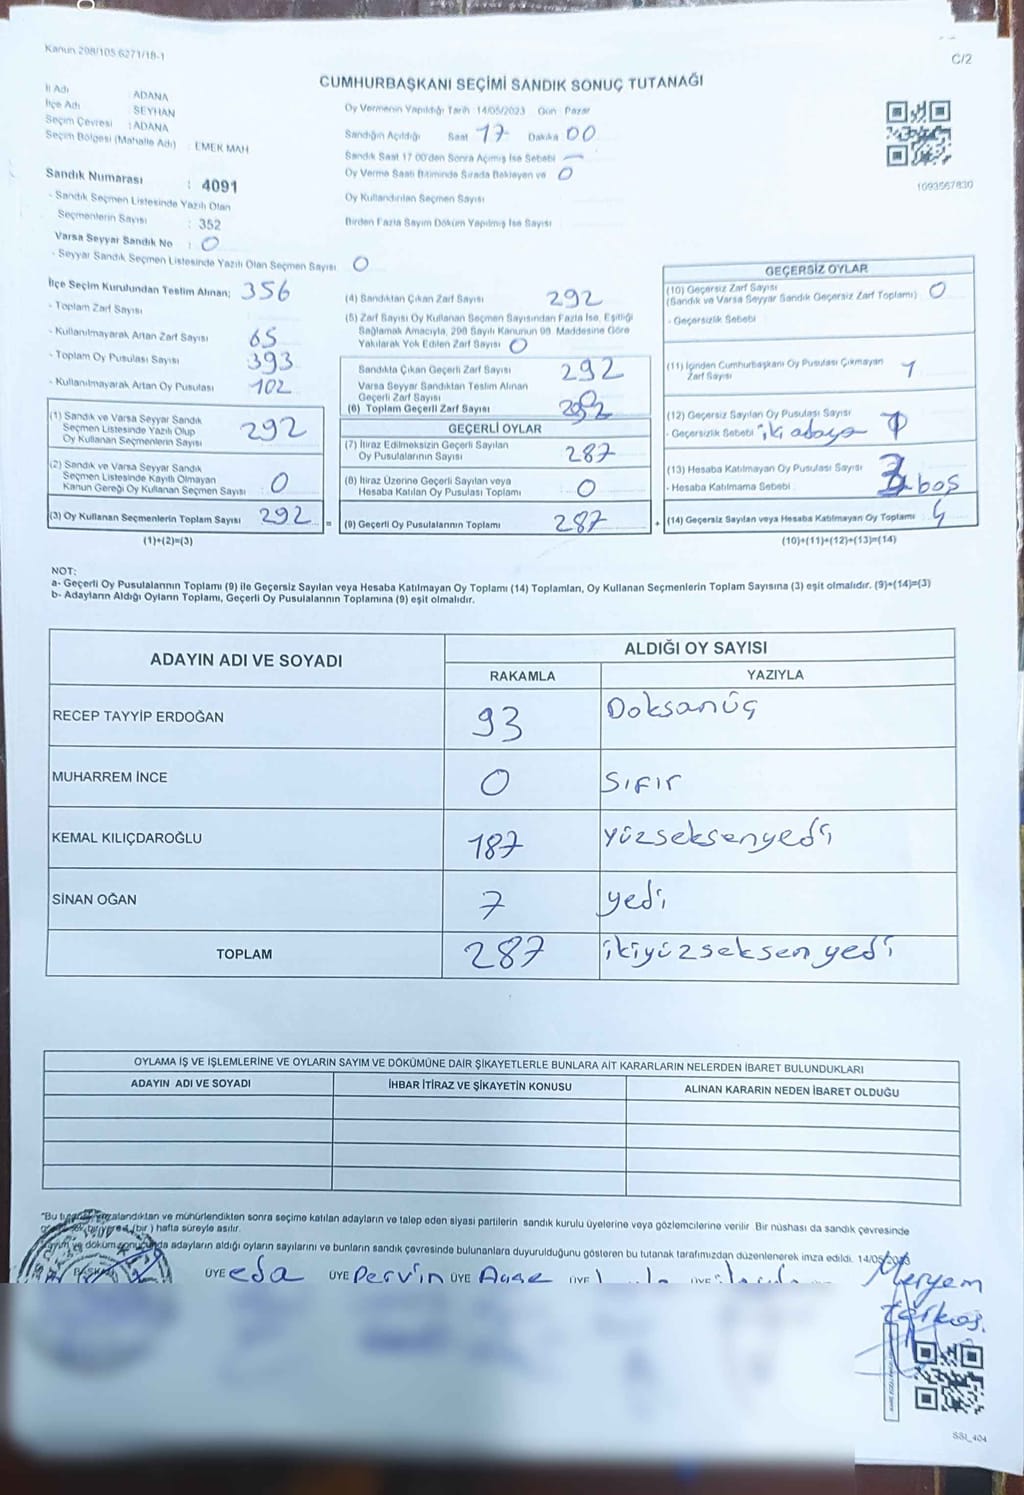 Kanun 298/105 6271/18-1
C/2
CUMHURBAŞKANI SEÇİMİ SANDIK SONUÇ TUTANAĞI
İl Adı : ADANA
İlçe Adı : SEYHAN
Seçim Çevresi : ADANA
Seçim Bölgesi (Mahalle Adı) : EMEK MAH
Sandık Numarası : 4091
- Sandık Seçmen Listesinde Yazılı Olan
Seçmenlerin Sayısı : 352
Varsa Seyyar Sandık No : 0
- Seyyar Sandık Seçmen Listesinde Yazılı Olan Seçmen Sayısı 0
Oy Vermenin Yapıldığı Tarih :14/05/2023 Gün : Pazar
Sandığın Açıldığı Saat 17 Dakika 00
Sandık Saat 17 00'den Sonra Açılmış İse Sebebi —
Oy Verme Saati Bitiminde Sırada Bekleyen ve 0
Oy Kullandırılan Seçmen Sayısı
Birden Fazla Sayım Döküm Yapılmış İse Sayısı
1693567830
İlçe Seçim Kurulundan Teslim Alınan; 356
- Toplam Zarf Sayısı
- Kullanılmayarak Artan Zarf Sayısı 65
- Toplam Oy Pusulası Sayısı 393
- Kullanılmayarak Artan Oy Pusulası 102
(1) Sandık ve Varsa Seyyar Sandık
Seçmen Listesinde Yazılı Olup
Oy Kullanan Seçmenlerin Sayısı 292
(2) Sandık ve Varsa Seyyar Sandık
Seçmen Listesinde Kayıtlı Olmayan
Kanun Gereği Oy Kullanan Seçmen Sayısı 0
(3) Oy Kullanan Seçmenlerin Toplam Sayısı 292
(1)+(2)=(3)
(4) Sandıktan Çıkan Zarf Sayısı 292
(5) Zarf Sayısı Oy Kullanan Seçmen Sayısından Fazla İse, Eşitliği
Sağlamak Amacıyla, 298 Sayılı Kanunun 98. Maddesine Göre
Yakılarak Yok Edilen Zarf Sayısı 0
Sandıkta Çıkan Geçerli Zarf Sayısı 292
Varsa Seyyar Sandıktan Teslim Alınan
Geçerli Zarf Sayısı
(6) Toplam Geçerli Zarf Sayısı 292
GEÇERLİ OYLAR
(7) İtiraz Edilmeksizin Geçerli Sayılan
Oy Pusulalarının Sayısı 287
(8) İtiraz Üzerine Geçerli Sayılan veya
Hesaba Katılan Oy Pusulası Toplamı 0
= (9) Geçerli Oy Pusulalarının Toplamı 287 +
GEÇERSİZ OYLAR
(10) Geçersiz Zarf Sayısı
(Sandık ve Varsa Seyyar Sandık Geçersiz Zarf Toplamı) 0
- Geçersizlik Sebebi
(11) İçinden Cumhurbaşkanı Oy Pusulası Çıkmayan
Zarf Sayısı 1
(12) Geçersiz Sayılan Oy Pusulası Sayısı
- Geçersizlik Sebebi iki adaya
(13) Hesaba Katılmayan Oy Pusulası Sayısı 3
- Hesaba Katılmama Sebebi boş
(14) Geçersiz Sayılan veya Hesaba Katılmayan Oy Toplamı
(10)+(11)+(12)+(13)=(14)
NOT:
a- Geçerli Oy Pusulalarının Toplamı (9) ile Geçersiz Sayılan veya Hesaba Katılmayan Oy Toplamı (14) Toplamları, Oy Kullanan Seçmenlerin Toplam Sayısına (3) eşit olmalıdır. (9)+(14)=(3)
b- Adayların Aldığı Oyların Toplamı, Geçerli Oy Pusulalarının Toplamına (9) eşit olmalıdır.
ADAYIN ADI VE SOYADI
ALDIĞI OY SAYISI
RAKAMLA YAZIYLA
RECEP TAYYİP ERDOĞAN 93 Doksanüç
MUHARREM İNCE 0 Sıfır
KEMAL KILIÇDAROĞLU 187 yüzseksenyedi
SİNAN OĞAN 7 yedi
TOPLAM 287 ikiyüzseksenyedi
OYLAMA İŞ VE İŞLEMLERİNE VE OYLARIN SAYIM VE DÖKÜMÜNE DAİR ŞİKAYETLERLE BUNLARA AİT KARARLARIN NELERDEN İBARET BULUNDUKLARI
ADAYIN ADI VE SOYADI İHBAR İTİRAZ VE ŞİKAYETİN KONUSU ALINAN KARARIN NEDEN İBARET OLDUĞU
"Bu imzalandıktan ve mühürlendikten sonra seçime katılan adayların ve talep eden siyasi partilerin sandık kurulu üyelerine veya gözlemcilerine verilir. Bir nüshası da sandık çevresinde
(bir) hafta süreyle asılır.
ve döküm sonucunda adayların aldığı oyların sayılarını ve bunların sandık çevresinde bulunanlara duyurulduğunu gösteren bu tutanak tarafımızdan düzenlenerek imza edildi. 14/05/2023
BAŞKAN ÜYE eda ÜYE Pervin ÜYE Ayşe ÜYE ÜYE Meryem
SSI_404